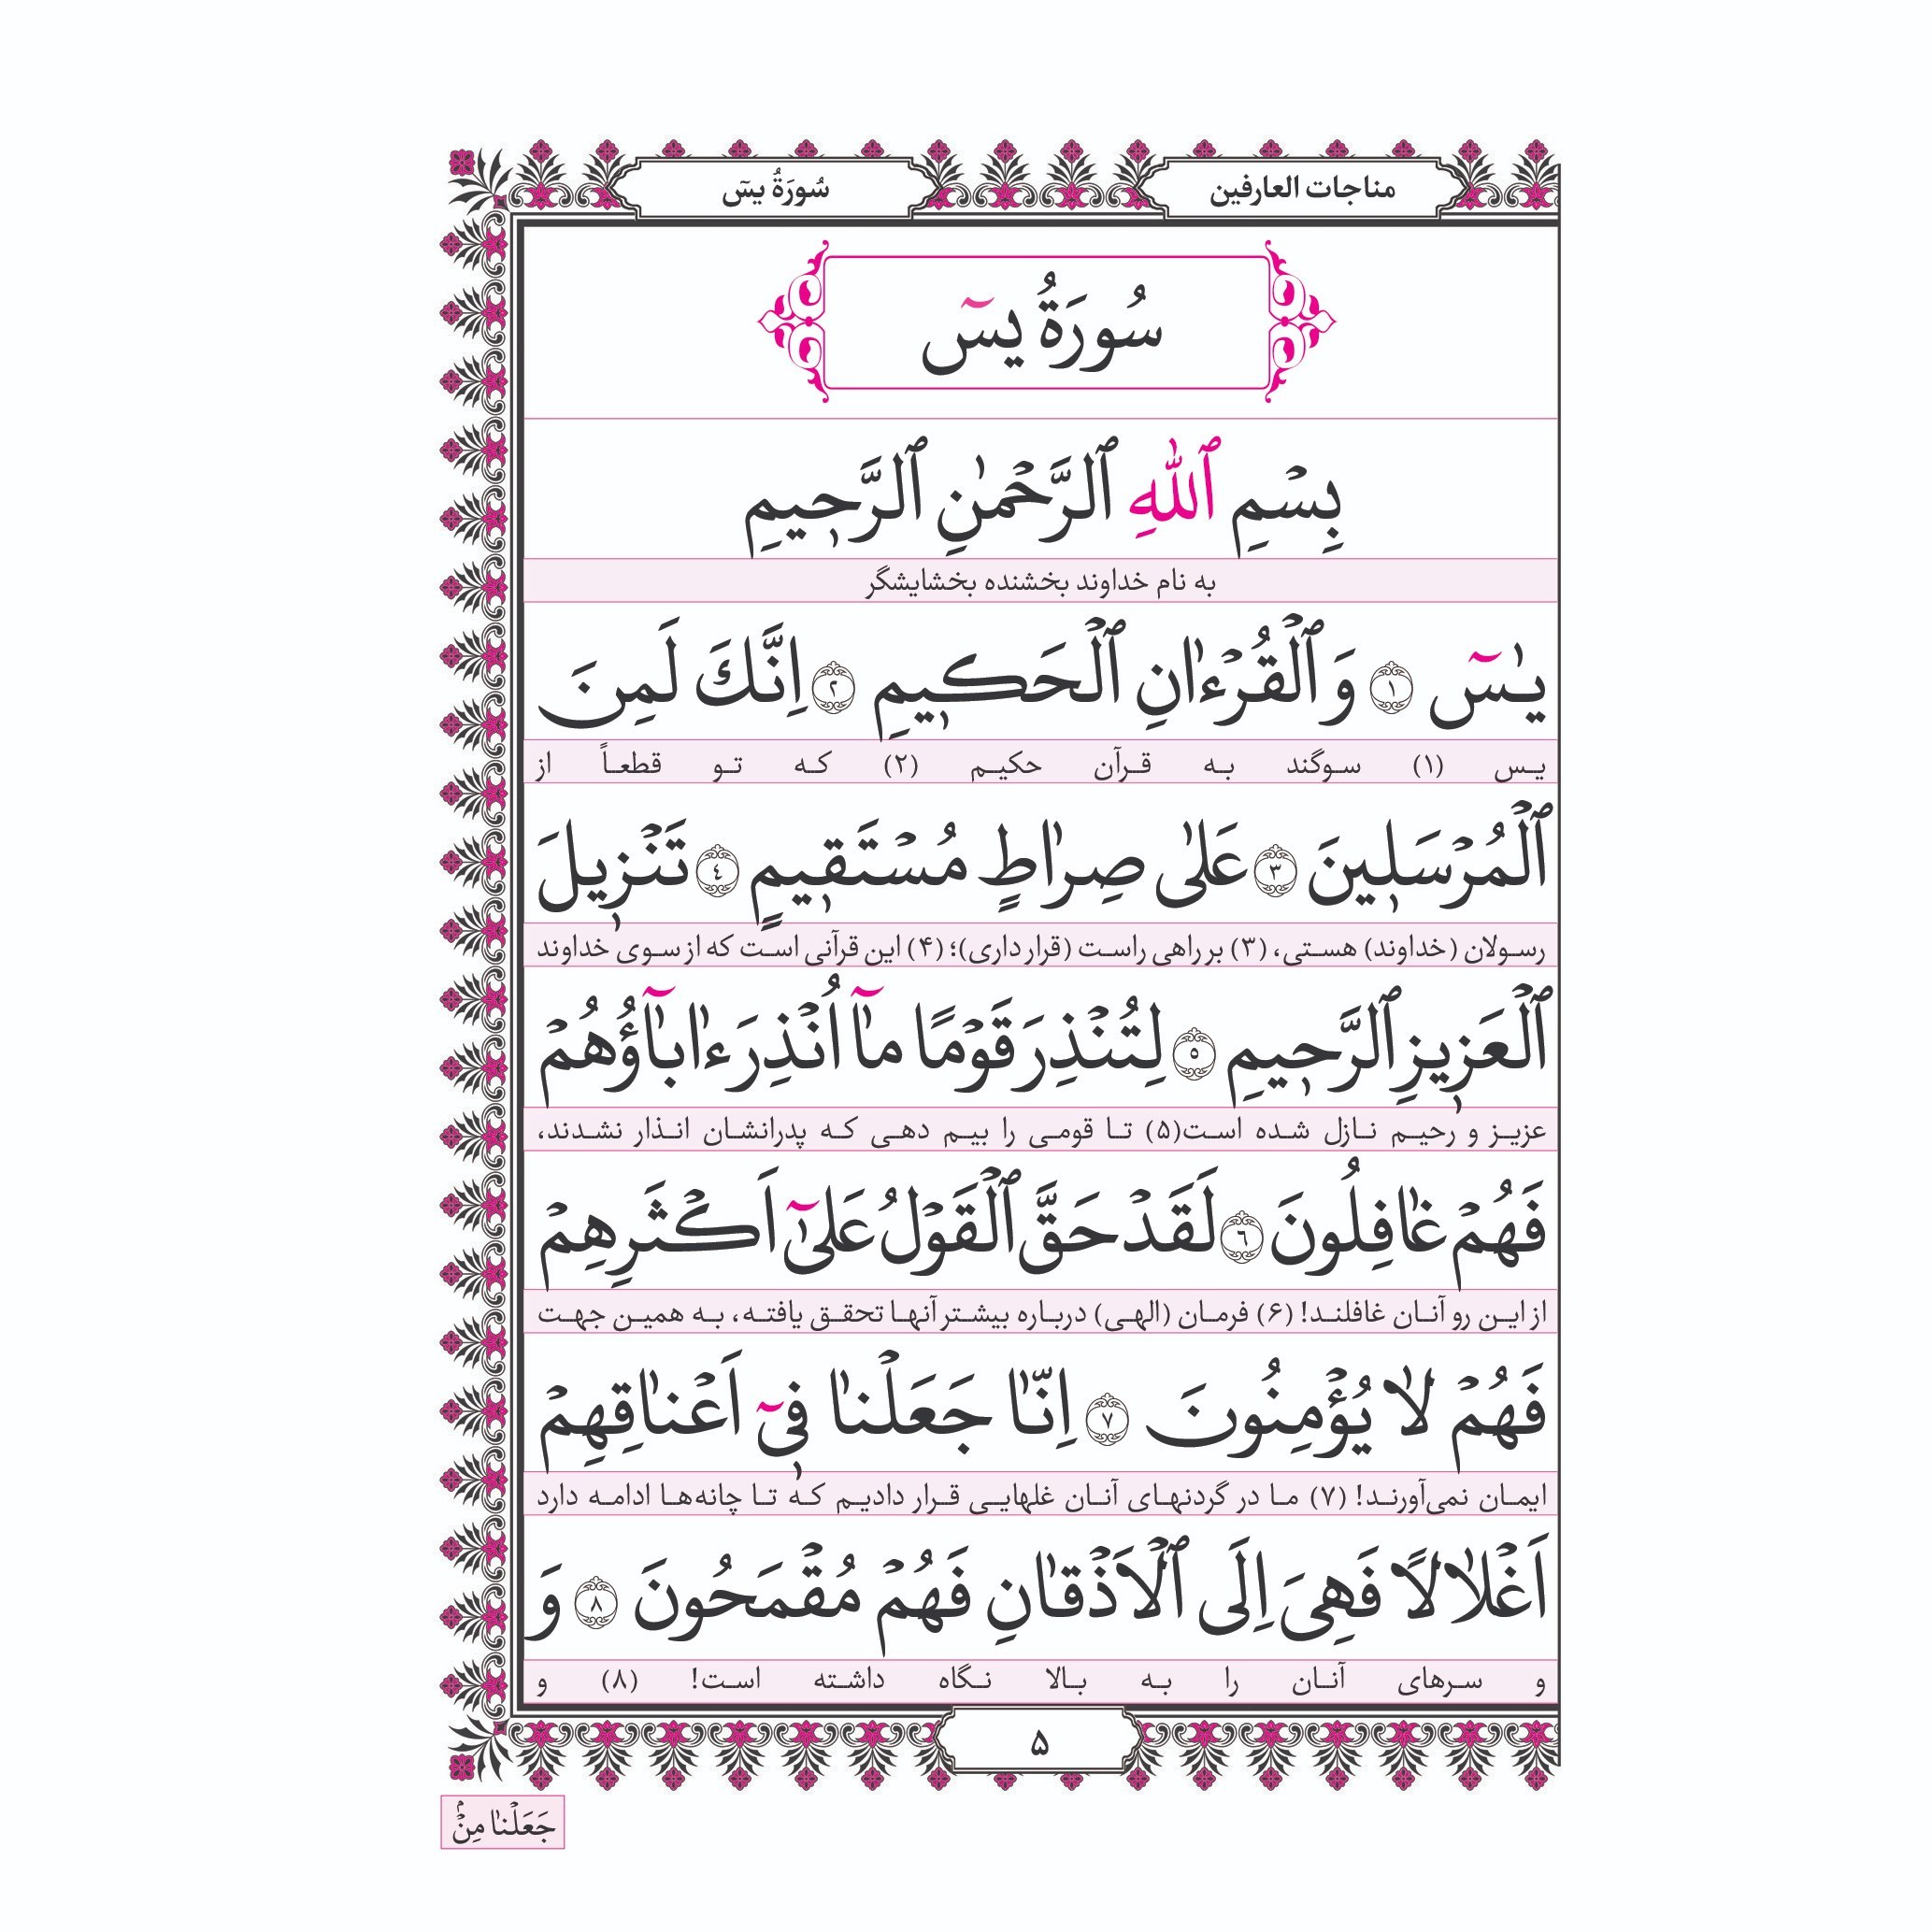 مناجات العارفین
سُورَةُ یسٓ
سُورَةُ یسٓ
بِسْمِ ٱللّٰهِ ٱلرَّحْمٰنِ ٱلرَّحٖیمِ
به نام خداوند بخشنده بخشایشگر
یٰسٓ ۝١ وَٱلْقُرْءٰانِ ٱلْحَكٖیمِ ۝٢ اِنَّكَ لَمِنَ
یـس (۱) سـوگند بـه قـرآن حکیـم (۲) کـه تـو قطعـاً از
ٱلْمُرْسَلٖینَ ۝٣ عَلٰى صِرٰاطٍ مُسْتَقٖیمٍ ۝٤ تَنْزٖیلَ
رسـولان (خداوند) هستـی، (۳) بر راهی راسـت (قرار داری)؛ (۴) این قرآنی اسـت که از سـوی خداوند
ٱلْعَزٖیزِ ٱلرَّحٖیمِ ۝٥ لِتُنْذِرَ قَوْمًا مٰٓا اُنْذِرَ ءٰابٰٓاؤُهُمْ
عزیـز و رحیـم نـازل شـده اسـت(۵) تـا قومـی را بیـم دهـی کـه پدرانشـان انـذار نشـدند،
فَهُمْ غٰافِلُونَ ۝٦ لَقَدْ حَقَّ ٱلْقَوْلُ عَلىٰٓ اَكْثَرِهِمْ
از ایـن رو آنـان غافلنـد! (۶) فرمـان (الهـی) دربـاره بیشـتر آنهـا تحقـق یافتـه، بـه همیـن جهـت
فَهُمْ لٰا یُؤْمِنُونَ ۝٧ اِنّٰا جَعَلْنٰا فٖیٓ اَعْنٰاقِهِمْ
ایمـان نمی‌آورنـد! (۷) مـا در گردنهـای آنـان غلهایـی قـرار دادیـم کـه تـا چانه‌هـا ادامـه دارد
اَغْلٰالًا فَهِیَ اِلَى ٱلْاَذْقٰانِ فَهُمْ مُقْمَحُونَ ۝٨ وَ
و سـرهای آنـان را بـه بـالا نـگاه داشـته اسـت! (۸) و
۵
جَعَلْنٰا مِنْۢ